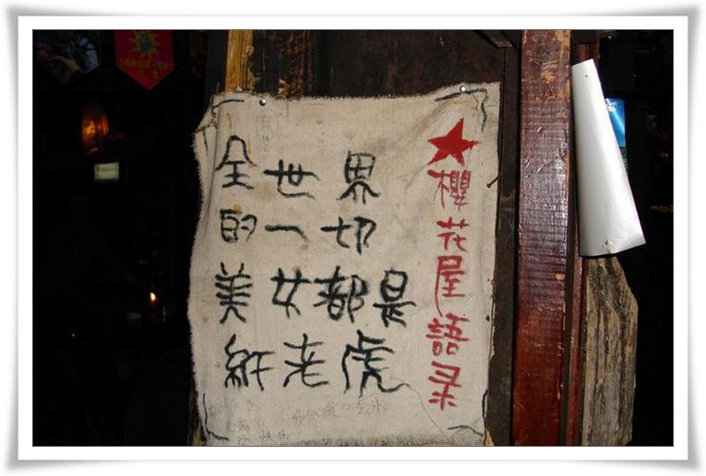 ★櫻花屋語录
全世界
的一切
美女都是
紙老虎